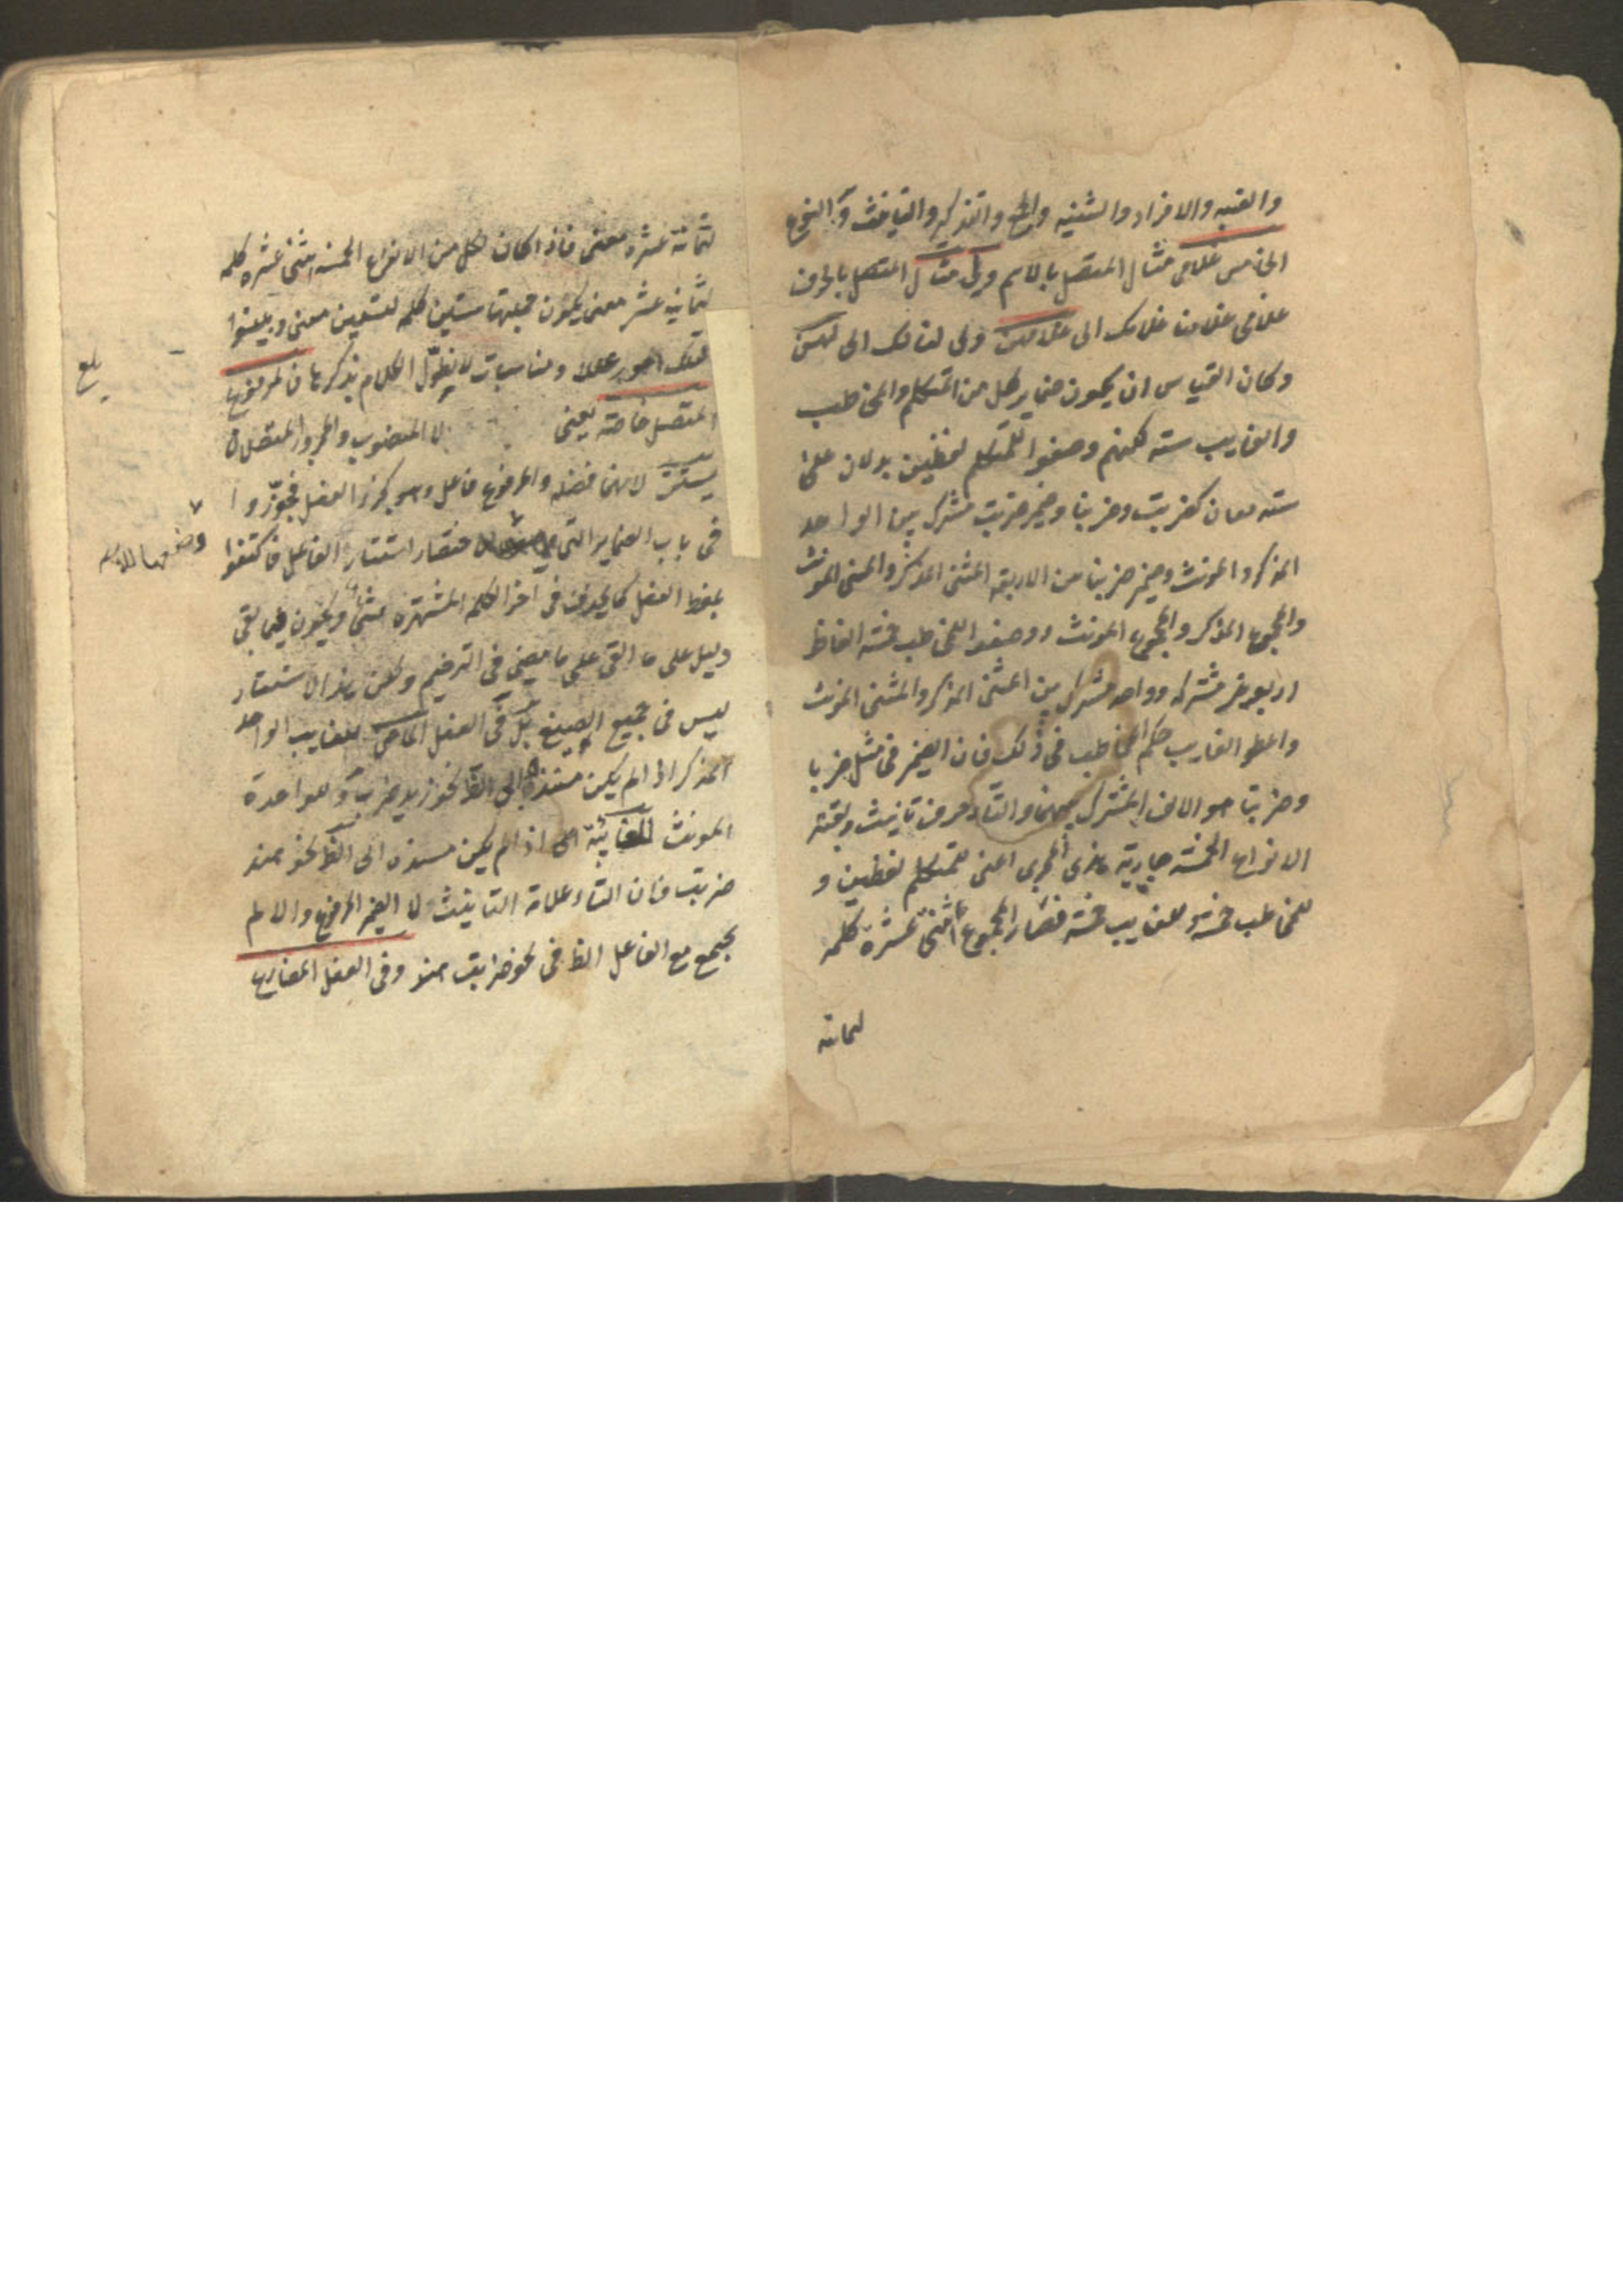 والغيبة والافراد والتثنيه والجمع والتذكير والتانيث و النوع
الخامس غلامى مثال المتصل بالاسم ولى مثال المتصل بالحرف
غلامى غلامنا غلامك الى غلامهن ولى لنا لك الى لهن
وكان القياس ان يكون ضماير كل من المتكلم والمخاطب
والغايب سته لكنهم وضعوا للمتكلم لفظين يدلان على
سته معان كضربت وضربنا وضمير ضربت مشترك بين الواحد
المذكر والمونث وضمير ضربنا من الاربعة المثنى المذكر والمثنى المونث
والمجموع المذكر والمجموع المونث ووضعوا للمخاطب خمسة الفاظ
اربعة غير مشتركه وواحد مشترك بين المثنى المذكر والمثنى المونث
واعطوا الغايب حكم المخاطب فى ذلك فان الضمير فى مثل ضربا
وضربتا هو الالف المشترك بينهما والتاء حرف تانيث وبقية
الانواع الخمسة جارية هذى المجرى اعنى للمتكلم لفظين و
للمخاطب خمسة وللغايب خمسة فصار المجموع اثنى عشرة كلمه
لثمانية
لثمانية عشرة معنى فاذا كان لكل من الانواع الخمسه اثنى عشره كلمه
لثمانيه عشر معنى يكون جملتها ستين كلمه لتسعين معنى وبينوا
لتلك امور عللا ومناسبات لا نطول الكلام بذكرها فالمرفوع
المتصل خاصة يعنى لا المنصوب والمجرور المتصلان
يستتر لانهما فضله والمرفوع فاعل وهو كجزء الفعل فجوزوا
فى باب الضماير التى وضعها للاختصار استتار الفاعل فاكتفوا
بلفظ الفعل كما يحذف فى اخر الكلمه المشتهره شئ ويكون فيما بقى
دليل على ما القى على ما مضى فى الترخيم ولكن هذا الاستتار
ليس فى جميع الصيغ بل فى الفعل الماضى للغايب الواحد
المذكر اذا لم يكن مسندا الى الظ نحو زيد ضرب و للواحدة
المونث الغائبة اى اذا لم يكن مسنده الى الظ نحو هند
ضربت فان التاء علامة التانيث لا الضمير المرفوع والا لم
يجتمع مع الفاعل الظ فى نحو ضربت هند وفى الفعل المضارع
بلغ